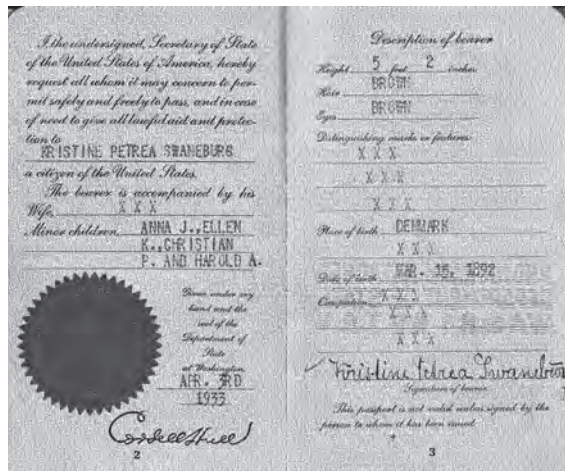 I the undersigned, Secretary of State
of the United States of America, hereby
request all whom it may concern to per-
mit safely and freely to pass, and in case
of need to give all lawful aid and protec-
tion to
KRISTINE PETREA SWANEBURG
a citizen of the United States.
The bearer is accompanied by his
Wife, X X X
Minor children, ANNA J., ELLEN
K., CHRISTIAN
P. AND HAROLD A.
Given under my
hand and the
seal of the
Department of
State
at Washington
APR. 3RD
1933
Cordell Hull
2
Description of bearer
Height 5 feet 2 inches
Hair BROWN
Eyes BROWN
Distinguishing marks or features:
X X X
X X X
X X X
Place of birth DENMARK
X X X
Date of birth MAR. 15, 1892
X X X
X X X
X X X
Kristine Petrea
Signature of bearer
This passport is not valid unless signed by the
person to whom it has been issued.
3